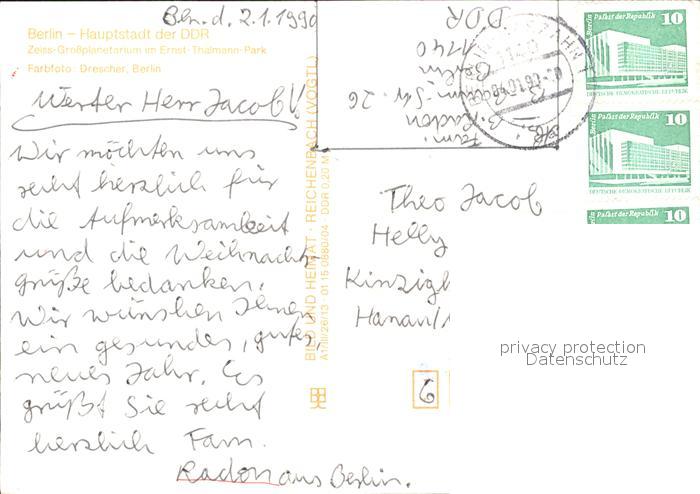 Bln. d. 2.1.1990
Berlin – Hauptstadt der DDR
Zeiss-Großplanetarium im Ernst-Thälmann-Park
Farbfoto: Drescher, Berlin
Werter Herr Jacob!
Wir möchten uns
recht herzlich für
die Aufmerksamkeit
und die Weihnachts-
grüße bedanken.
Wir wünschen Ihnen
ein gesundes, gutes,
neues Jahr. Es
grüßt Sie recht
herzlich Fam.
Radon aus Berlin.
BILD UND HEIMAT · REICHENBACH (VOGTL)
A1/III/26/13 · 01 15 0880/04 · DDR 0,20 M
Abs.:
Fam.
B. Radon
26
Berlin
1140
DDR
Berlin Palast der Republik 10
DEUTSCHE DEMOKRATISCHE REPUBLIK
Berlin Palast der Republik 10
DEUTSCHE DEMOKRATISCHE REPUBLIK
Palast der Republik 10
Theo Jacob
Helly
Kinzig
Hanau/
6
privacy protection
Datenschutz